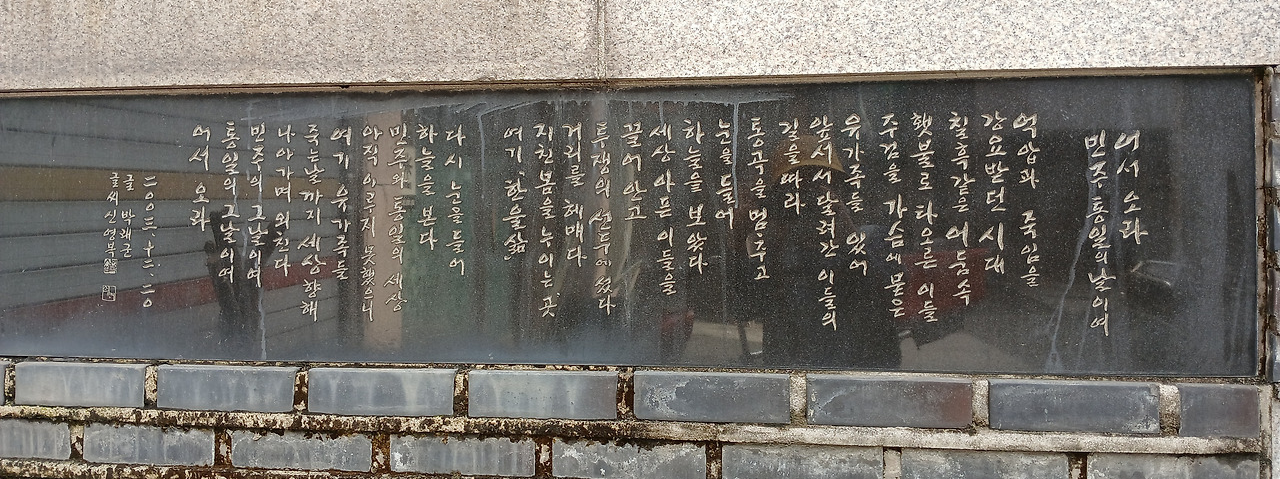 어서 오라
민주 통일의 날이여
억압과 죽임을
강요받던 시대
칠흑같은 어둠속
횃불로 타오른 이들
주검을 가슴에 묻은
유가족들 있어
앞서서 달려간 이들의
길을 따라
통곡을 멈추고
눈을 들어
하늘을 보았다
세상 아픈 이들을
끌어 안고
투쟁의 선두에 섰다
거리를 헤매다
지친 몸을 누이는 곳
여기, 한울삶
다시 눈을 들어
하늘을 보다
민주와 통일의 세상
아직 이르지 못했으니
여기 유가족들
죽는 날까지 세상 향해
나아가며 외친다
민주의 그날이여
통일의 그날이여
어서 오라
二〇〇三. 十二. 二〇
글 박래군
글씨 신영복